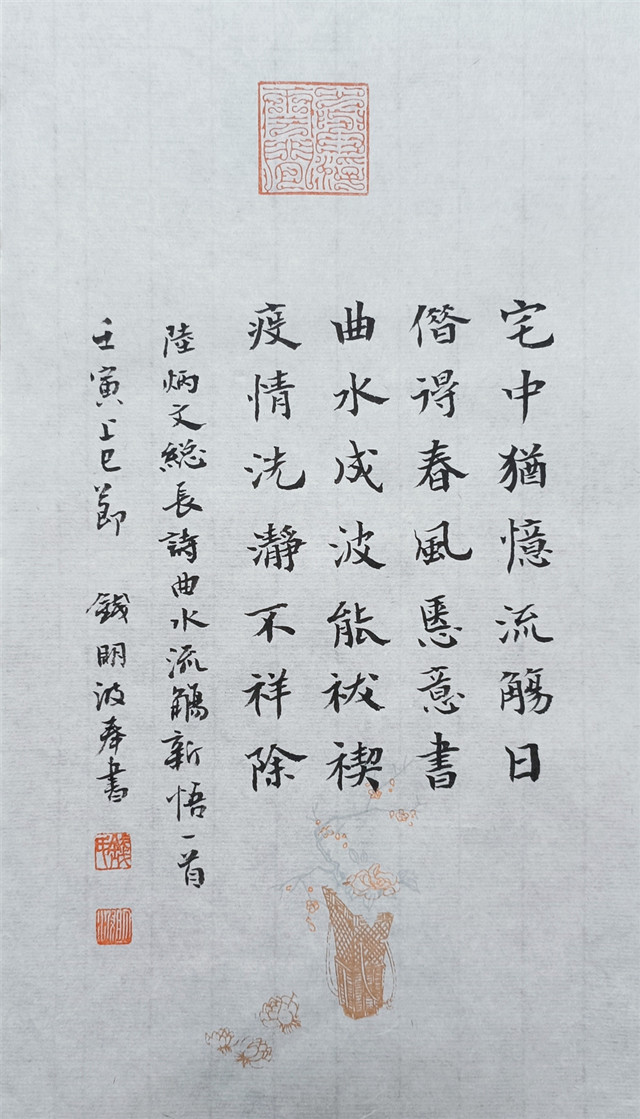 宅中猶憶流觴日
僭得春風意書
曲水成波能祓禊
疫情洗瀞不祥除
陸炳文総長詩曲水流觴新悟一首
壬寅上巳節 錢明波奉書